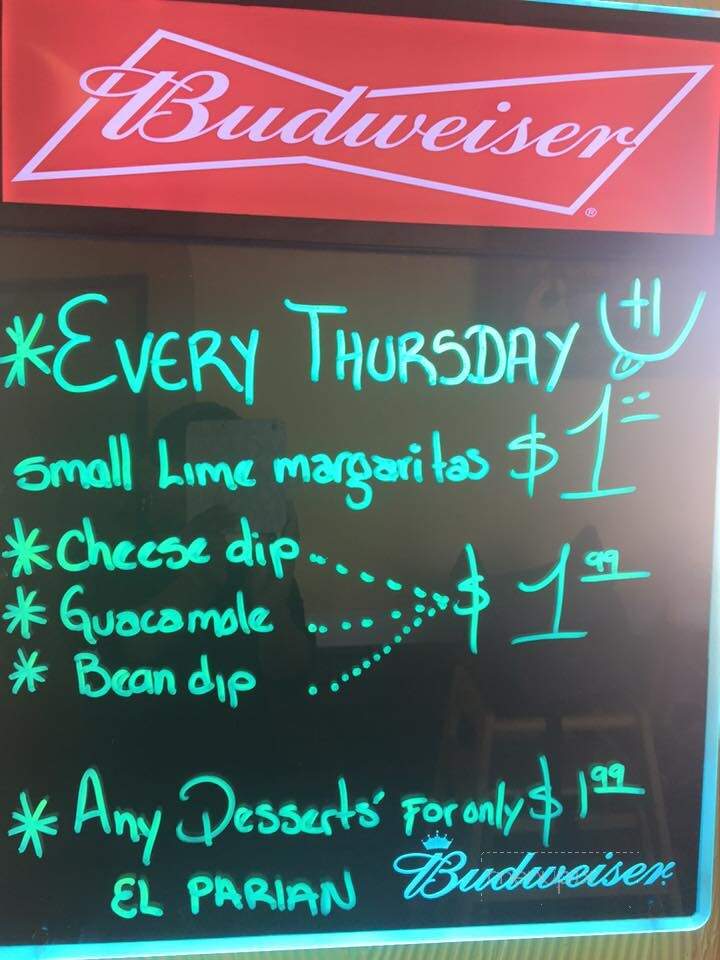 Budweiser
®
*EVERY THURSDAY
small Lime margaritas $1
*Cheese dip
*Guacamole
*Bean dip
$1.99
*Any Desserts' For only $1.99
EL PARIAN
Budweiser